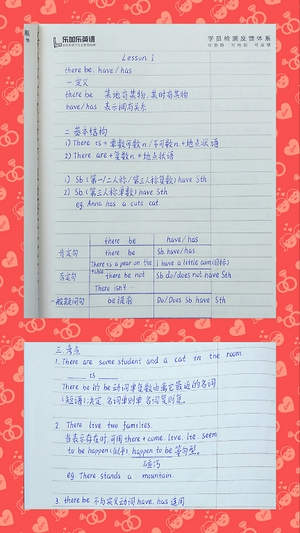 乐加乐英语
学员检测反馈体系
Lesson 1
there be, have/has
一 定义
there be 某地有某物,某时有某物
have/has 表示拥有关系
二 基本结构
1) There is + 单数可数n./不可数n. + 地点状语
2) There are + 复数n. + 地点状语
1) Sb (第一/二人称/第三人称复数) have Sth
2) Sb (第三人称单数) have Sth
eg. Anna has a cute cat.
there be have/has
肯定句 there be Sb have/has
There is a pear on the table. I have a little aim(目标)
否定句 there be not Sb do/does not have Sth
There isn't ...
一般疑问句 be提前 Do/Does Sb have Sth
三. 考点
1. There are some student and a cat in the room.
is
There be 的 be 动词单复数由离它最近的名词
(短语)决定. 名词单则单 名词复则复.
2. There live two families.
当表示存在时,可用 there + come, live, lie, seem
to be happen(似乎) happen to be 等句型.
碰巧
eg. There stands a mountain.
3. there be 不与实义动词 have, has 连用